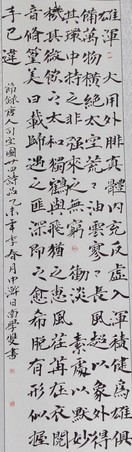 雄渾大用外腓真體內充反虛入渾積健為雄具
備萬物橫絕太空荒荒油雲寥寥長風超以象外得
其環中持之非強來之無窮沖淡素處以默妙
機其微飲之太和獨鶴與飛猶之惠風荏苒在衣閱
音修篁美曰載歸遇之匪深即之愈希脫有形似握
手已違
節錄唐人司空圖廿四詩品乙未年季春月中澣日南學書